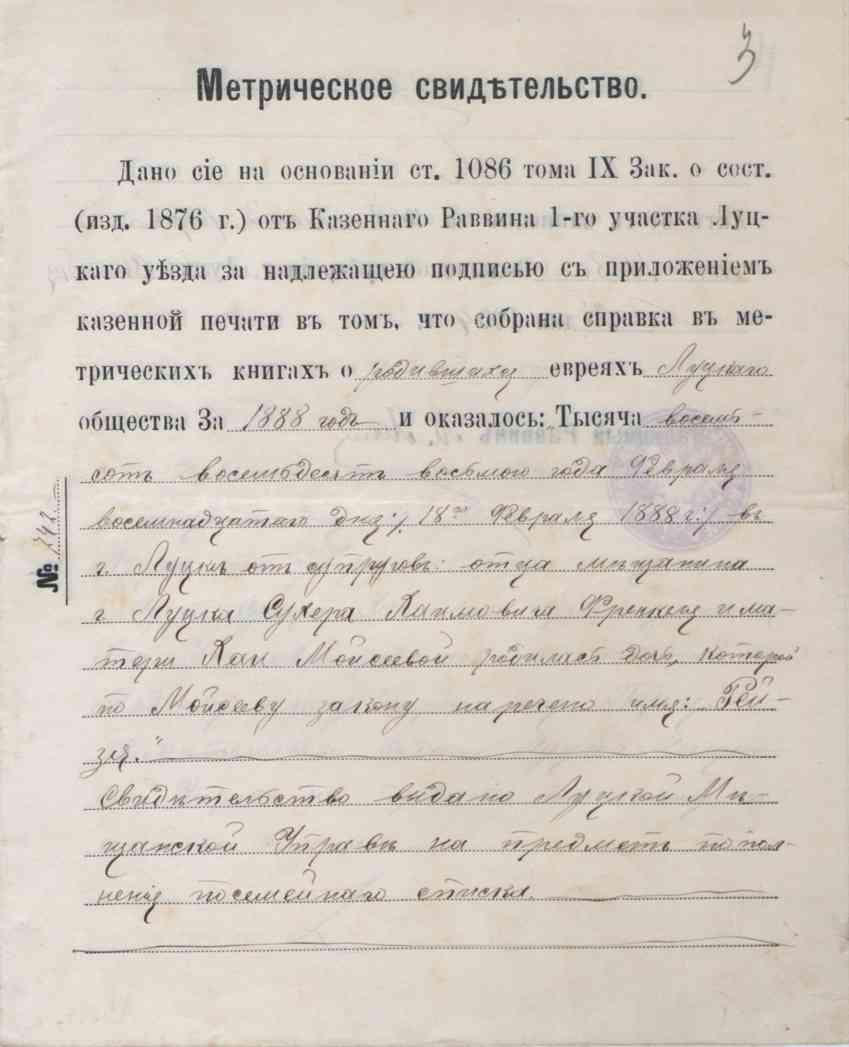 3
Метрическое свидѣтельство.
Дано сіе на основаніи ст. 1086 тома IX Зак. о сост.
(изд. 1876 г.) отъ Казеннаго Раввина 1-го участка Луц-
каго уѣзда за надлежащею подписью съ приложеніемъ
казенной печати въ томъ, что собрана справка въ ме-
трическихъ книгахъ о родившихся евреяхъ Луцкаго
общества За 1888 годъ и оказалось: Тысяча восемь-
сотъ восемьдесятъ восьмого года Февраля
восемнадцатаго дня :/ 18го Февраля 1888 г :/ въ
г. Луцкѣ отъ супруговъ: отца мѣщанина
г Луцка Сухера Хаимовича Френкеля и ма-
тери Хаи Мойсеевой родилась дочь, которой
по Мойсееву закону наречено имя: Рей-
зя."
Свидѣтельство видано Луцкой Мѣ-
щанской Управѣ на предметъ попол-
ненія посемейнаго списка.
№ 242